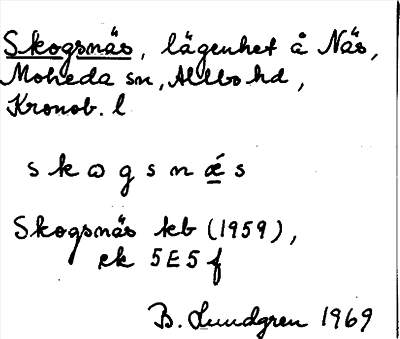 Skogsnäs, lägenhet å Näs,
Moheda sn, Allbo hd,
Kronob. l
s k ω g s n ǽ s
Skogsnäs kb (1959),
ek 5E5f
B. Lundgren 1969